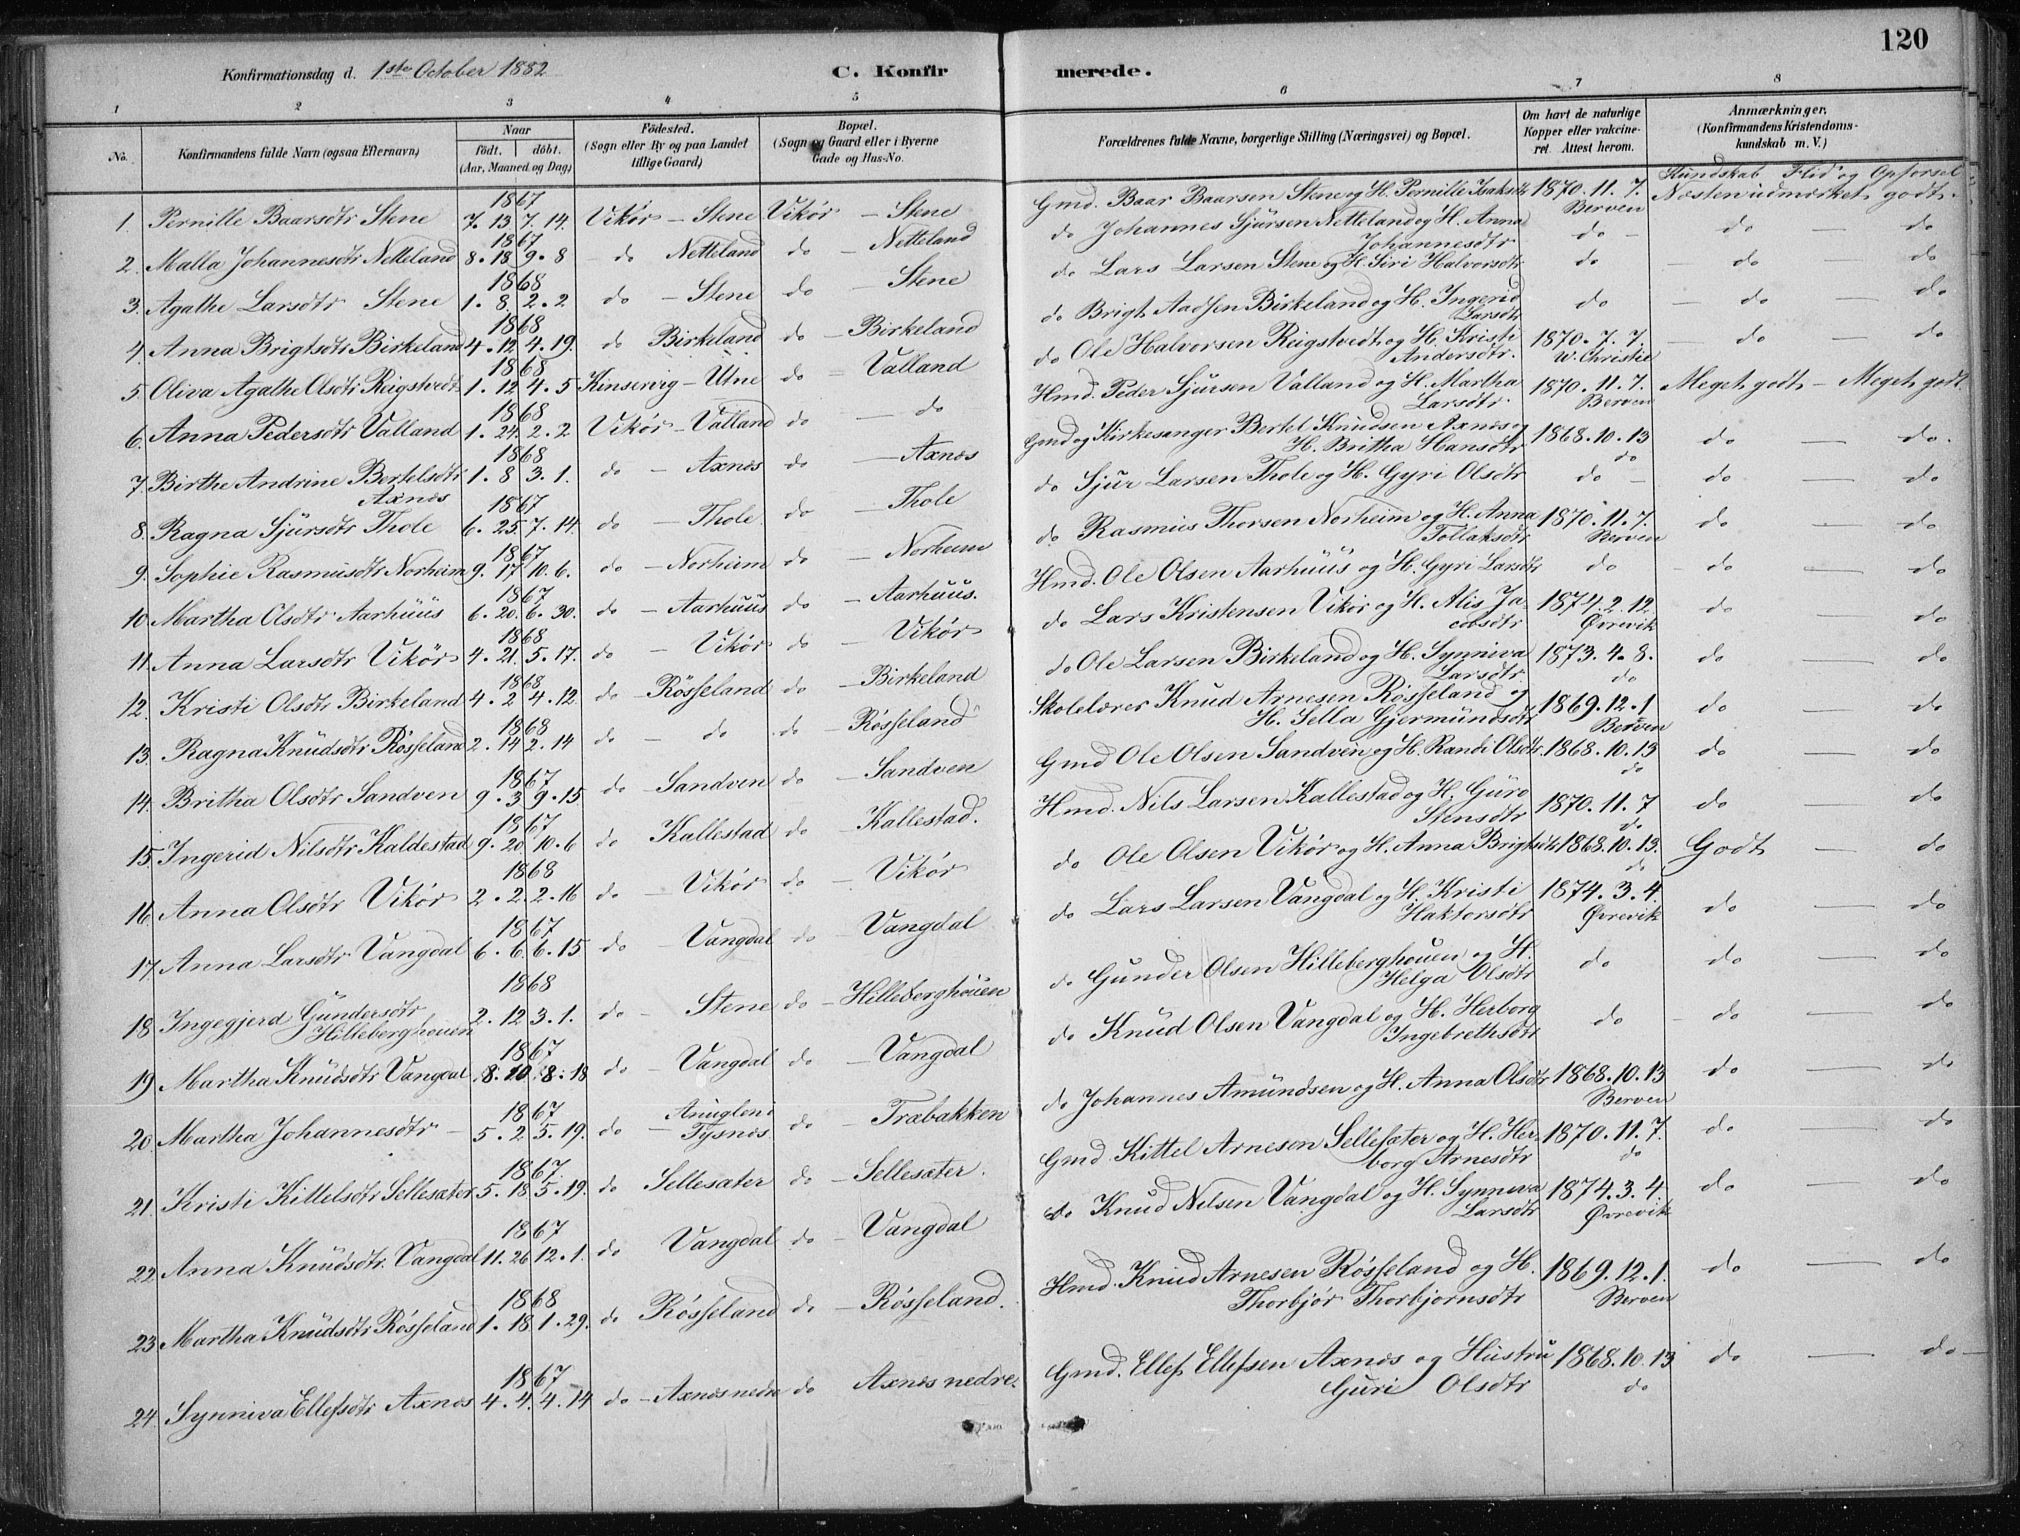 120
Konfirmationsdag d. 1ste October 1882
C. Konfirmerede.
1 2 3 4 5 6 7 8
No. Konfirmandens fulde Navn (ogsaa Efternavn)
Naar
født. døbt.
(Aar, Maaned og Dag)
Fødested.
(Sogn eller By og paa Landet
tillige Gaard)
Bopæl.
(Sogn og Gaard eller i Byerne
Gade og Hus-No.
Forældrenes fulde Navne, borgerlige Stilling (Næringsvei) og Bopæl.
Om havt de naturlige
Kopper eller vakcine-
ret. Attest herom.
Anmærkninger,
(Konfirmandens Kristendoms-
kundskab m. V.)
Kundskab Flid og Opførsel
1. Pernille Baarsdtr Stene 1867 7.13 7.14. Vikör – Stene Vikör – Stene Gmd. Baar Baarsen Stene og H. Pernille Isaksdtr 1870.11.7. Berven Næsten udmærket godt.
2. Malla Johannesdtr Netteland 1867 8.18 9.8 do Netteland do – Netteland do Johannes Sjürsen Netteland og H. Anna Johannesdtr do – do – do
3. Agathe Larsdtr Stene 1868 1.8. 2.2 do – Stene do – Stene do Lars Larsen Stene og H. Siri Halvorsdtr do – do – do
4. Anna Brigtsdtr Birkeland 1868 4.12 4.19. do Birkeland do – Birkeland do Brigt Aadsen Birkeland og H. Ingerid Larsdtr do – do – do
5. Oliva Agathe Olsdtr Reigstvedt 1868 1.12 4.5 Kinservig – Utne do – Valland do Ole Halvorsen Reigstvedt og H. Kristi Andersdtr. 1870.7.7. W. Christie – do – do
6. Anna Pedersdtr Valland 1868 1.24. 2.2 Vikör – Valland do – do Hmd. Peder Sjursen Valland og H. Martha Larsdtr. 1870.11.7. Berven Meget godt – Meget godt.
7. Birthe Andrine Bertelsdtr Axnes 1868 1.8 3.1. do – Axnes do – Axnes Gmd og Kirkesanger Bertel Knudsen Axnes og H. Britha Hansdtr 1868.10.13 do do – do.
8. Ragna Sjürsdtr Thole 1867 6.25 7.14. do – Thole. do – Thole do Sjür Larsen Thole og H. Gyri Olsdtr do – do – do
9. Sophie Rasmusdtr Norheim 1867 9.17 10.6. do – Norheim do – Norheim do Rasmus Thorsen Norheim og H. Anna Tollaksdtr 1870.11.7. Berven do – do
10 Martha Olsdtr Aarhüüs 1867 6.20. 6.30. do – Aarhuus do – Aarhuus. Hmd. Ole Olsen Aarhuüs og H. Gyri Larsdtr do – do – do
11. Anna Larsdtr Vikör 1868 4.21. 5.17. do – Vikör do – Vikör do Lars Kristensen Vikör og H. Alis Jacobsdtr 1874.2.12. Øvrevik do – do
12. Kristi Olsdtr Birkeland 1868 4.2 4.12. do – Rösseland do – Birkeland do Ole Larsen Birkeland og H. Synniva Larsdtr 1873.4.8. do do – do
13. Ragna Knüdsdtr Rösseland 1868 2.14 2.14 do – do do – Rösseland Skolelærer Knud Arnesen Rösseland og H. Sella Gjermündsdtr 1869.12.1 Berven do – do
14. Britha Olsdtr Sandven 1867 9.3 9.15 do – Sandven do – Sandven Gmd Ole Olsen Sandven og H. Randi Olsdtr 1868.10.13 do do – do
15. Ingerid Nilsdtr Kaldestad 1867 9.20 10.6 do Kallestad do – Kallestad. Hmd. Nils Larsen Kallestad og H. Güro Stensdtr 1870.11.7 do do – do
16. Anna Olsdtr Vikör 1868 2.2. 2.16 do – Vikör do – Vikör do Ole Olsen Vikör og H. Anna Brigtsdtr 1868.10.13. do Godt – do
17. Anna Larsdtr Vangdal 1867 6.6. 6.15 do – Vangdal do – Vangdal do Lars Larsen Vangdal og H. Kristi Haktorsdtr 1874.3.4. Øvrevik do – do
18 Ingegjerd Gündersdtr Hilleberghouen 1868 2.12 3.1. do – Stene do – Hilleberghouen do Gunder Olsen Hilleberghouen og H. Helga Olsdtr do do – do
19 Martha Knüdsdtr Vangdal 1867 8.10 8.18 do – Vangdal do – Vangdal do Knüd Olsen Vangdal og H. Herborg Ingebrethsdtr do – do – do
20. Martha Johannesdtr – 1867 5.2 5.19. do – Anuglen i Tysnes do – Træbakken do Johannes Amündsen og H. Anna Olsdtr 1868.10.13 Berven do – do
21. Kristi Kittelsdtr Sellesæter 1867 5.18. 5.19. do Sellesæter do – Sellesæter. Gmd. Kittel Arnesen Sellesæter og H. Herborg Arnesdtr 1870.11.7. do do – do
22. Anna Knüdsdtr Vangdal 1867 11.26 12.1. do Vangdal do – Vangdal do Knud Nilsen Vangdal og H. Synneva Larsdtr 1874.3.4. Øvrevik do – do
23. Martha Knüdsdtr Rösseland 1868 1.18 1.29. do Rösseland do – Rösseland. Hmd. Knud Arnesen Rösseland og H. Thorbjör Thorbjornsdtr 1869.12.1. Berven do – do
24. Synniva Ellefsdtr Axnes 1867 4.4. 4.14 do – Axnes nedre do Axnes nedre. Gmd. Ellef Ellefsen Axnes og Hüstru Guri Olsdtr 1868.10.13 do do – do –